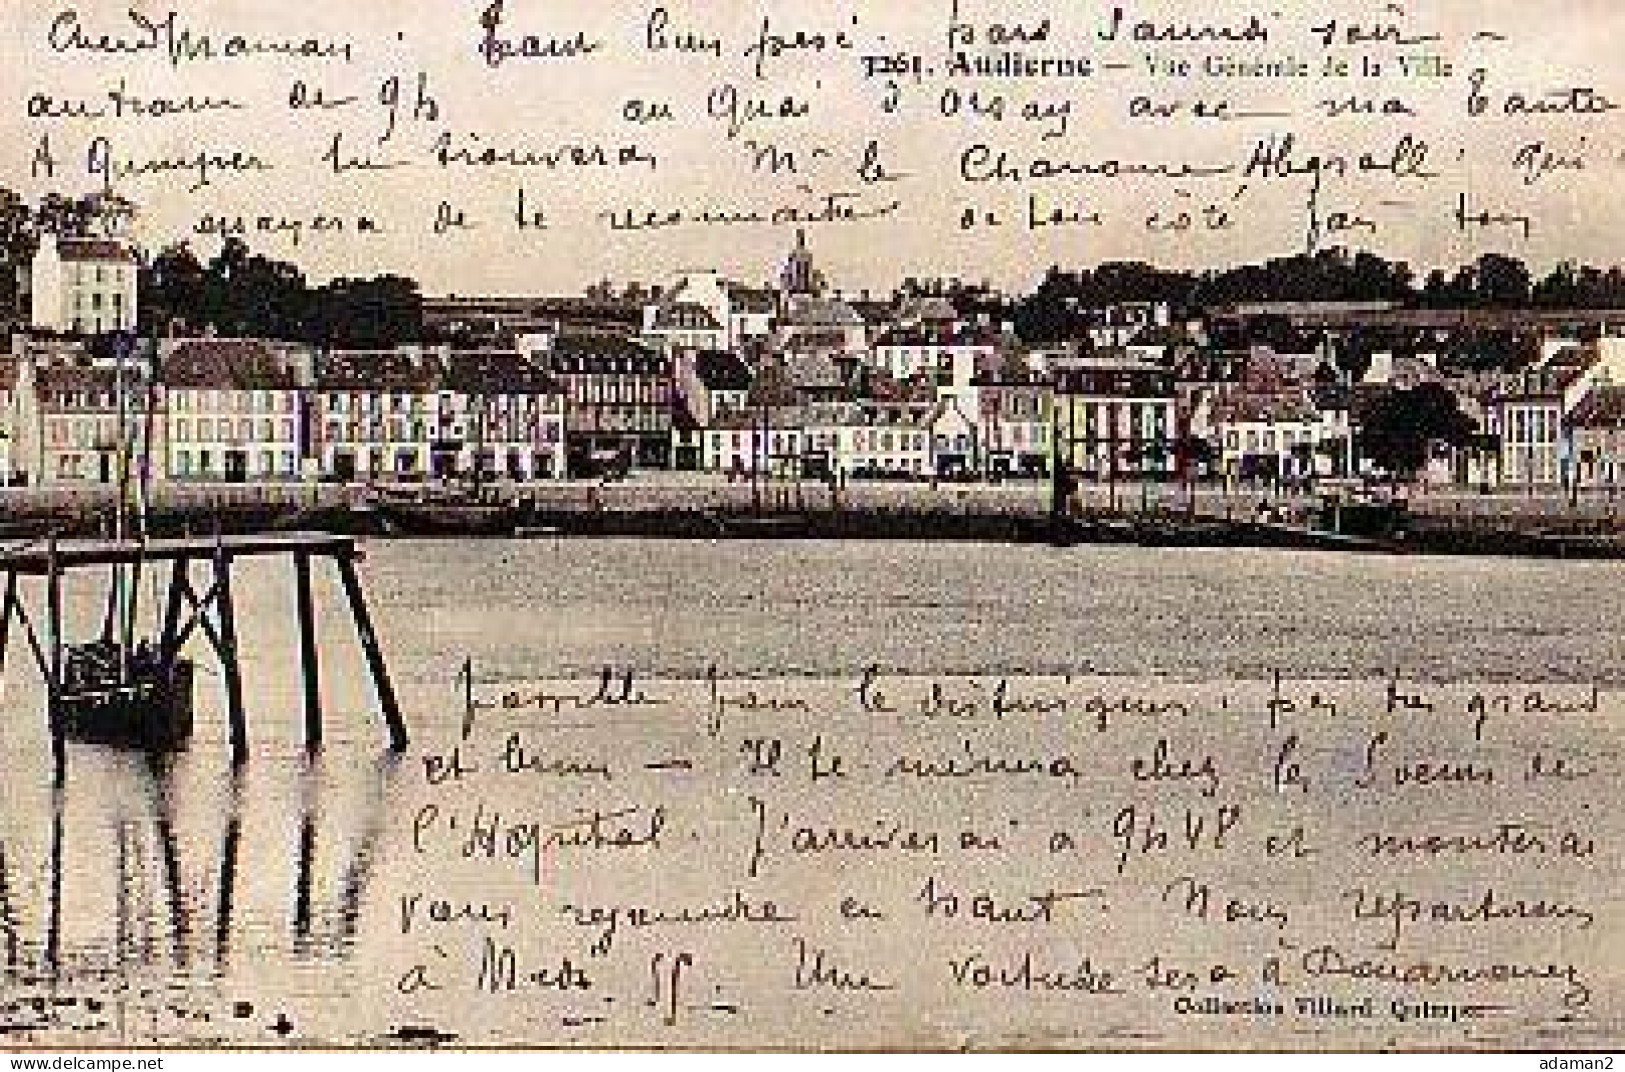 Chère Maman. Tout bien pesé. pars Samedi soir -
3261. Audierne — Vue Générale de la Ville
au train de 9h au Quai d'Orsay avec ma Tante
A Quimper tu trouveras Mr le Chanoine Abgrall. qui
essayera de te reconnaître de ton côté fais ton
possible pour le distinguer. pas très grand
et brun — Il te mènera chez les Soeurs de
l'Hôpital. J'arriverai à 9h48 et monterai
vous rejoindre en haut. Nous repartirons
à Midi 55. Une voiture sera à Douarnenez
Collection Villard Quimper
adaman2